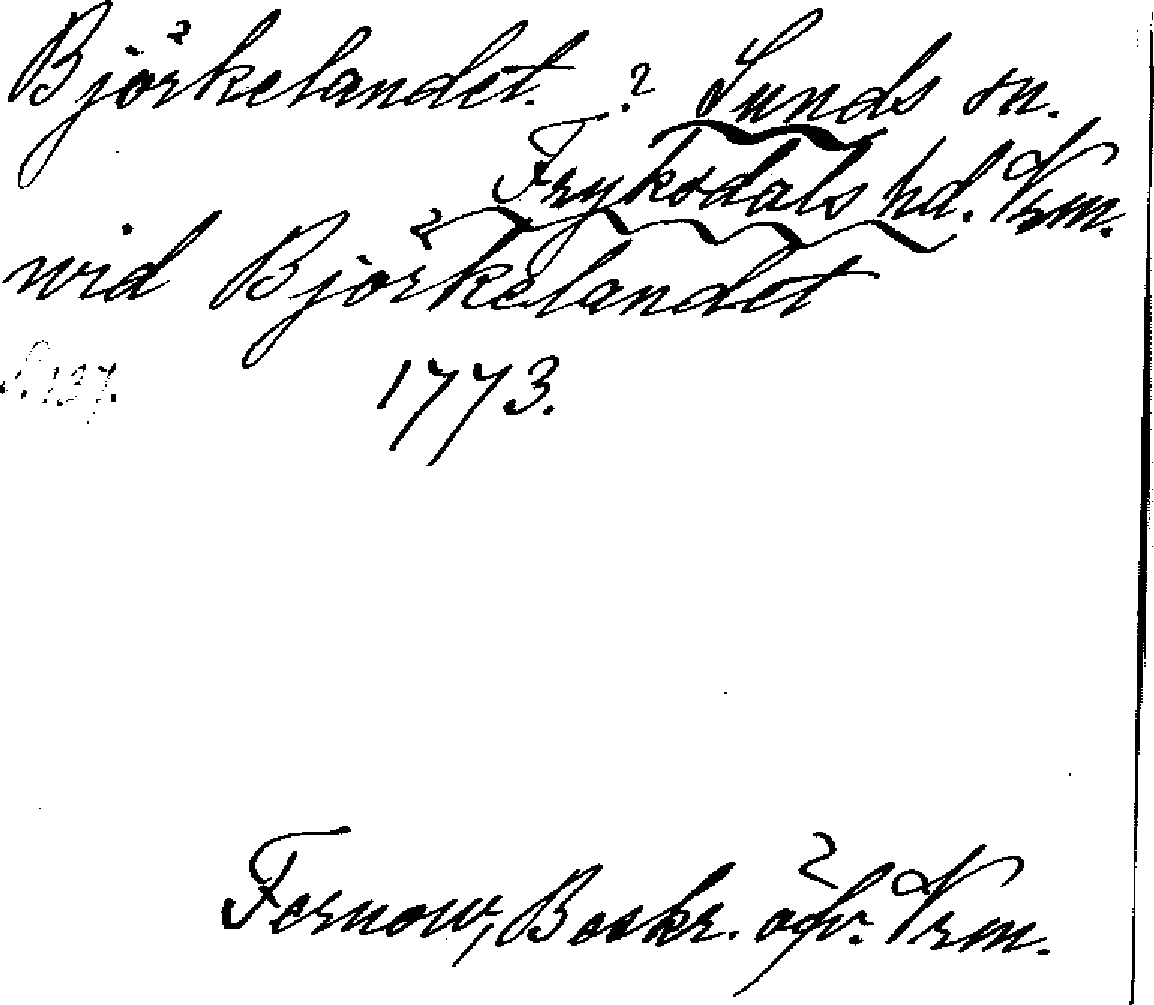 Björkelandet. ? Sunds sn.
Fryksdals hd. Vrm.
wid Björkelandet
S. 137. 1773.
Fernow, Beskr. öfv. Vrm.